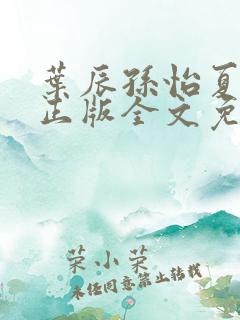 葉辰孫怡夏
正版全文免
荣小荣
未经同意禁止转载